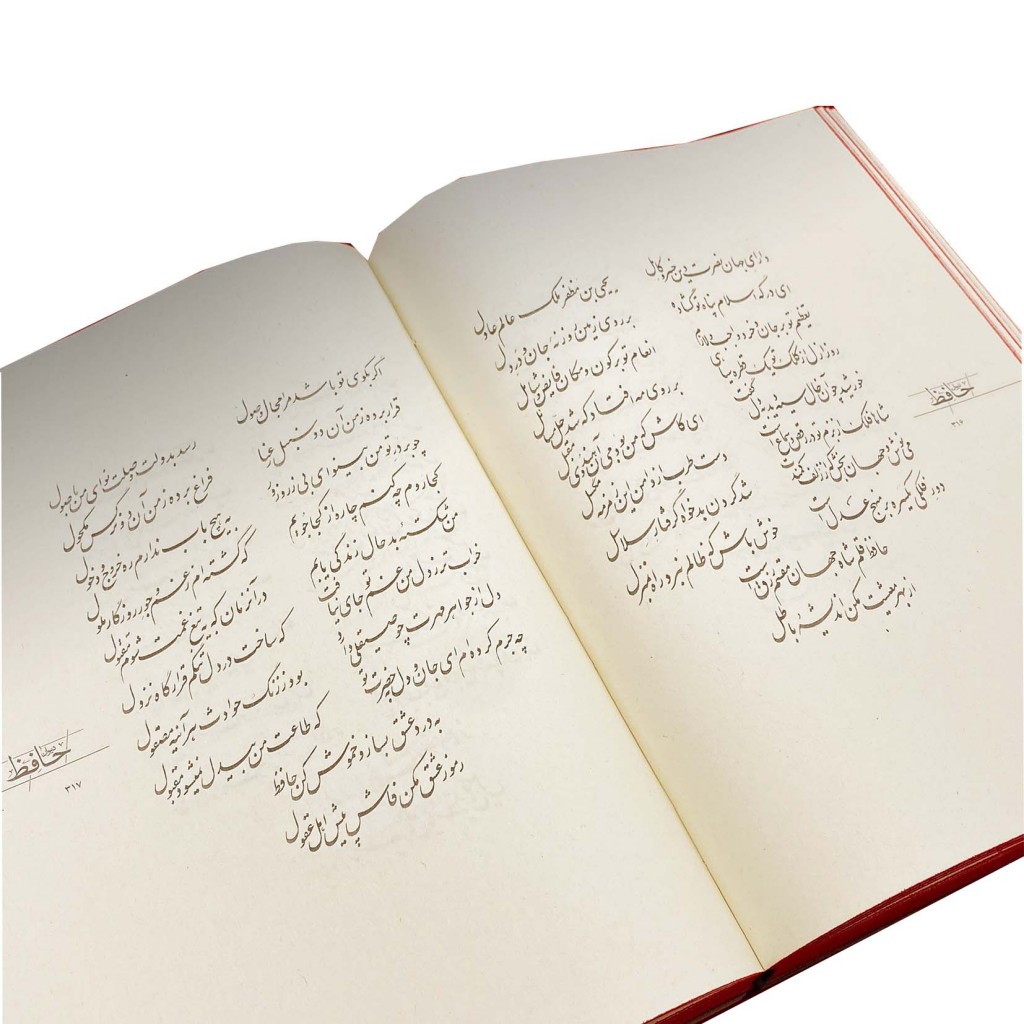 دارای جهان نصرت دین خسرو کامل
یحیی بن مظفر ملک عالم عادل
ای درگه اسلام پناه تو گشاده
بر روی زمین روزنه جان و در دل
تعظیم تو بر جان و خرد واجب و لازم
انعام تو بر کون و مکان فایض و شامل
روز ازل از کلک تو یک قطره سیاهی
بر روی مه افتاد که شد حل مسائل
خورشید چو آن خال سیه دید بدل گفت
ای کاش که من بودمی آن هندوی مقبل
شاها فلک از بزم تو در رقص و سماع است
دست طرب از دامن این زمزمه مگسل
می نوش و جهان بخش که از زلف کمندت
شد گردن بدخواه گرفتار سلاسل
دور فلکی یکسره بر منهج عدل است
خوش باش که ظالم نبرد راه بمنزل
حافظ قلم شاه جهان مقسم رزق است
از بهر معیشت مکن اندیشه باطل
دیوان حافظ
۳۱۶
اگر بکوی تو باشد مرا مجال وصول
رسد بدولت وصلت نوای من باصول
قرار برده ز من آن دو سنبل رعنا
فراغ برده ز من آن دو نرگس مکحول
چو بر در تو من بینوای بی زر و زور
به هیچ باب ندارم ره خروج و دخول
کجا روم چه کنم چاره از کجا جویم
که گشته ام ز غم و جور روزگار ملول
من شکسته بدحال زندگی یابم
در آن زمان که به تیغ غمت شوم مقتول
خراب تر ز دل من غم تو جای نیافت
که ساخت در دل تنگم قرارگاه نزول
دل از جواهر مهرت چو صیقلی دارد
بود ز زنگ حوادث هر آینه مصقول
چه جرم کرده ام ای جان و دل بحضرت تو
که طاعت من بیدل نمیشود مقبول
به درد عشق بساز و خموش کن حافظ
رموز عشق مکن فاش پیش اهل عقول
دیوان حافظ
۳۱۷